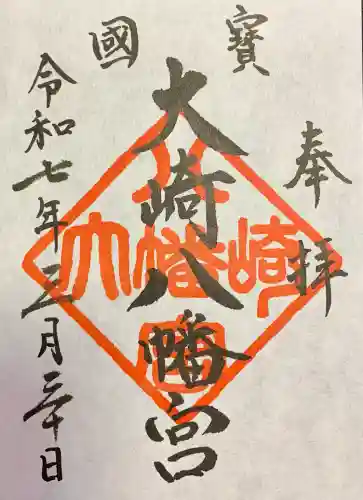 寶國
奉拝
大崎八幡宮
令和七年三月三十日
大幡崎